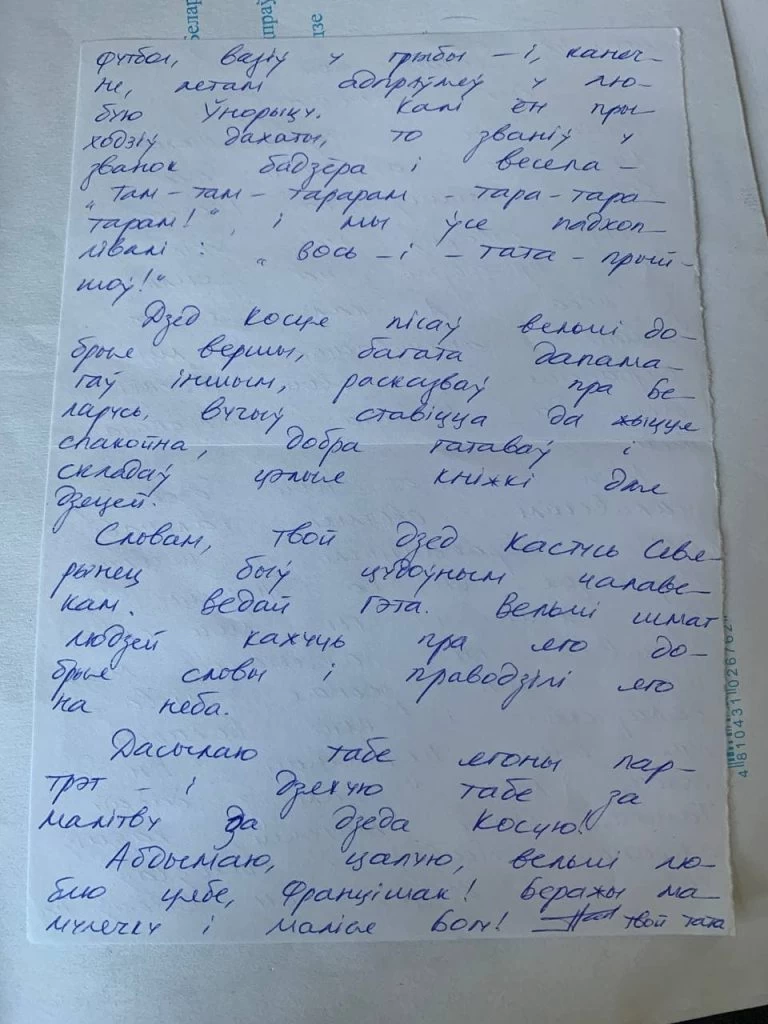 Белар
праў
дзе
футбол, вазіў у грыбы – і, канеч-
не, летам адпраўляў у лю-
бую Ўнорыцу. Калі ён пры-
ходзіў дахаты, то званіў у
званок бадзёра і весела –
„Там-там-тарарам-тара-тара-
тарам!“, і мы ўсе падхоп-
лівалі: „вось-і-тата-прый-
шоў!“
Дзед Косця пісаў вельмі до-
брыя вершы, багата дапама-
гаў іншым, расказваў пра Бе-
ларусь, вучыў ставіцца да жыцця
спакойна, добра гатаваў і
складаў цэлыя кніжкі для
дзецей.
Словам, твой дзед Кастусь Севя-
рынец быў цудоўным чалаве-
кам. Ведай гэта. Вельмі шмат
людзей кажуць пра яго до-
брыя словы і праводзілі яго
на неба.
Дасылаю табе ягоны пар-
трэт – і дзякую табе за
малітву за дзеда Косцю!
Абдымаю, цалую, вельмі лю-
блю цябе, Францішак! Беражы ма-
мулечку і маліся Богу! твой тата
4 810431 026762